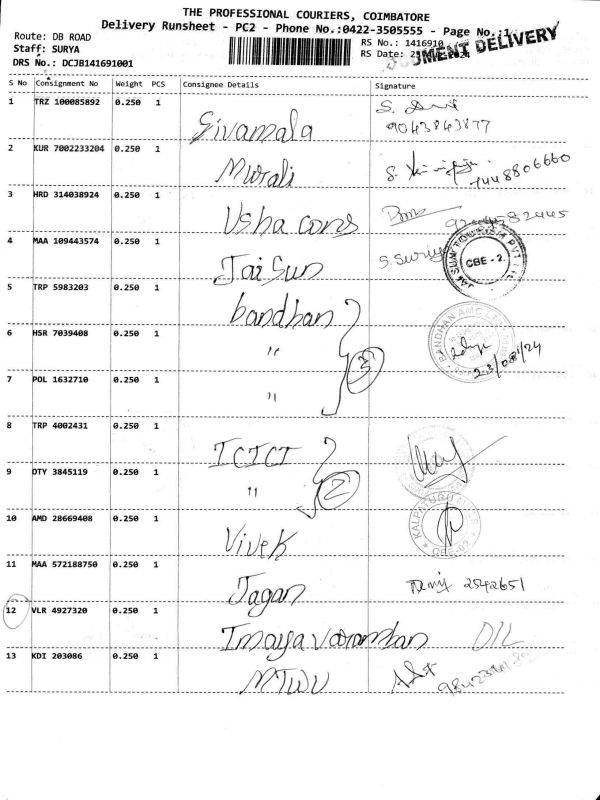 THE PROFESSIONAL COURIERS, COIMBATORE
Delivery Runsheet - PC2 - Phone No.:0422-3505555 - Page No.:1
Route: DB ROAD
RS No.: 1416910
DOCUMENT DELIVERY
Staff: SURYA
RS Date:
DRS No.: DCJB141691001
S No Consignment No Weight PCS Consignee Details Signature
1 TRZ 100085892 0.250 1 Sivamala S.
9043843877
2 KUR 7002233204 0.250 1 Murali S. 7448806660
3 HRD 314038924 0.250 1 Usha cons
4 MAA 109443574 0.250 1 Jai Sun S. Suriya
CBE - 2.
5 TRP 5983203 0.250 1 bandhan
6 HSR 7039408 0.250 1 " 3
23/08/24
7 POL 1632710 0.250 1 "
8 TRP 4002431 0.250 1 ICICI
9 OTY 3845119 0.250 1 " 2
10 AMD 28669408 0.250 1 Vivek
CBE-02
11 MAA 572188750 0.250 1 Jagan 2542651
12 VLR 4927320 0.250 1 Imayavaramban D/L
13 KDI 203086 0.250 1 MTWU